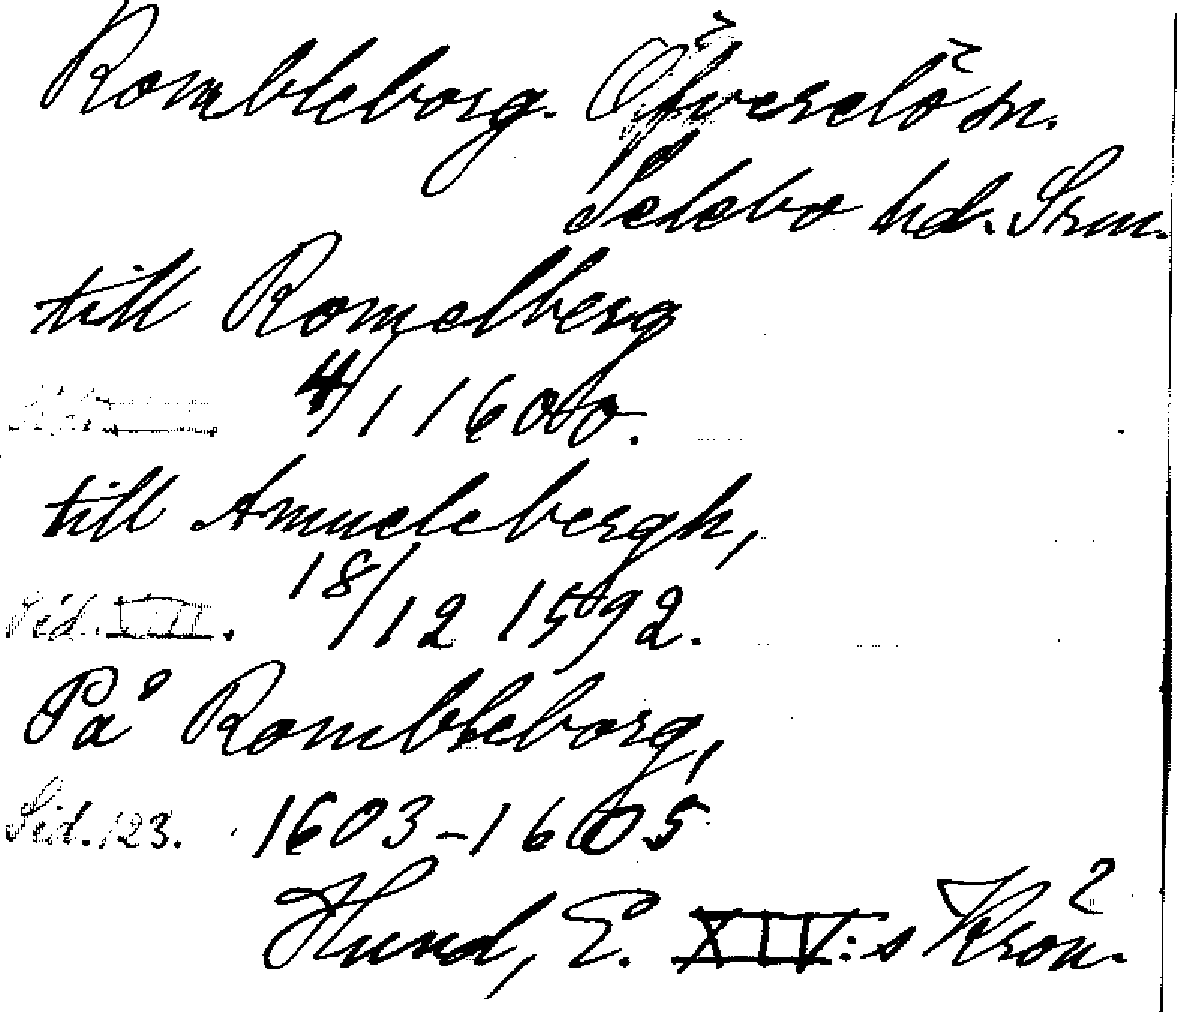 Rombleborg. Öfverselö sn.
Selebo hd. Srm.
till Romelberg
4/1 1600.
till Amuelebergh,
Sid. XIII. 18/12 1592.
På Rombleborg,
Sid. 123. 1603-1605
Hund, E. XIV:s Krön.